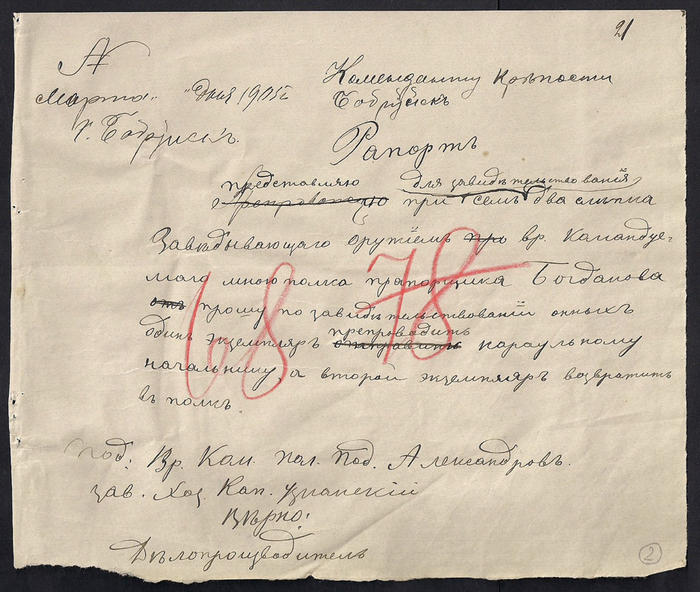 21
№
Марта " " дня 1905 г
г. Бобруискъ.
Коменданту крѣпости
Бобруйскъ
Рапортъ
представляю для завидѣтельствованія
при семъ два слѣпка
Завѣдывающаго оружіемъ про вр. Командуе-
маго мною полка прапорщика Богданова
отъ прошу по завидѣтельствованіи онныхъ
одинъ экземпляръ препроводить
отправить караульному
начальнику, а второй экземпляръ возвратить
въ полкъ.
68 78
под: Вр. Ком. пол. Под. Александровъ.
зав. Хоз. Кап.
Вѣрно:
Дѣлопроизводитель
2